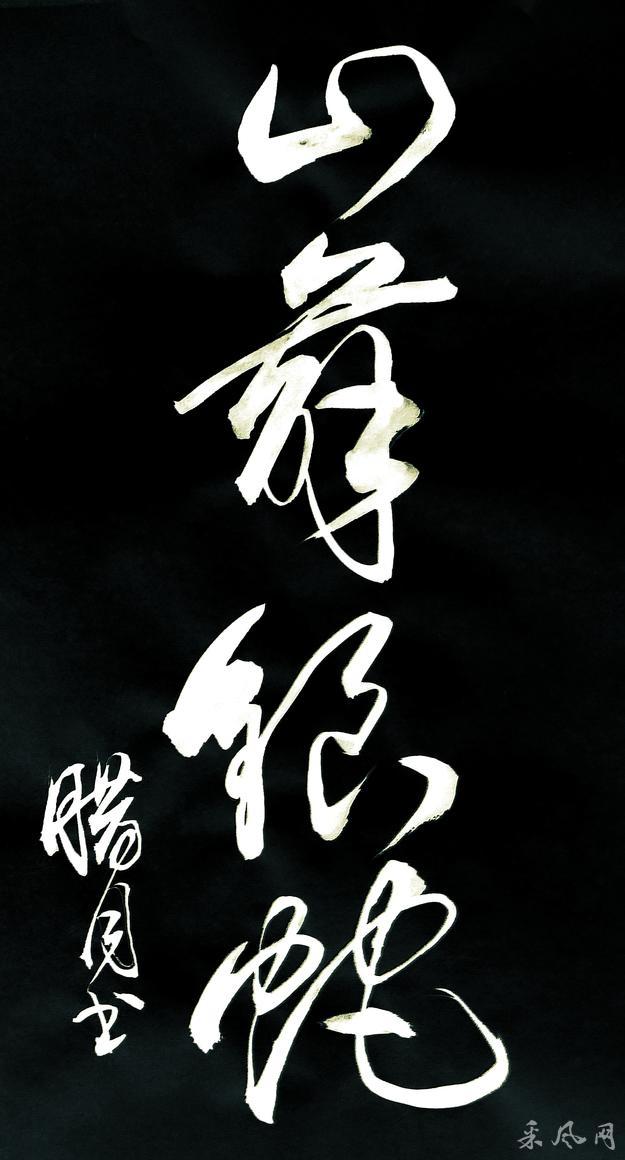 山舞银蛇
腊月书
采风网